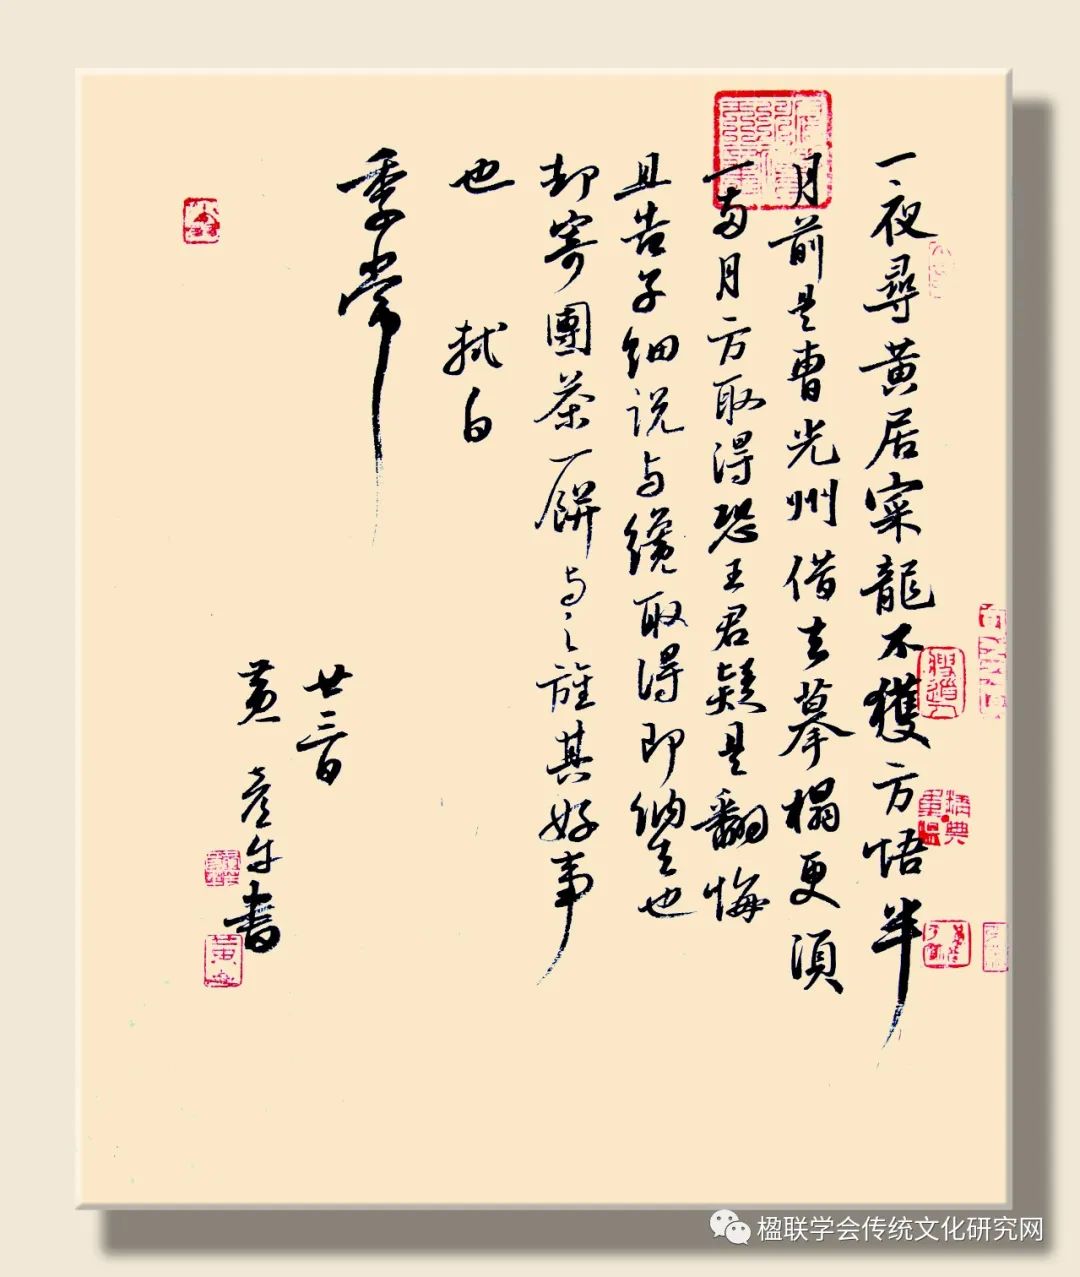 一夜尋黃居寀龍不獲方悟半
月前是曹光州借去摹榻更須
一兩月方取得恐王君疑是翻悔
且告子細説与纔取得即納去也
却寄團茶一餅与之旌其好事
也 軾白
季常
廿三日
黄 書
楹联学会传统文化研究网